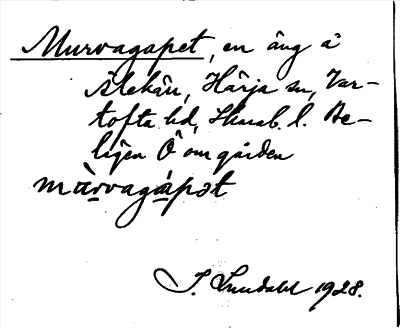 Murvagapet, en äng å
Ålekärr, Härja sn, Var-
tofta hd, Skarab. l. Be-
lägen Ö om gården
mùrvagápət
J. Lundahl 1928.